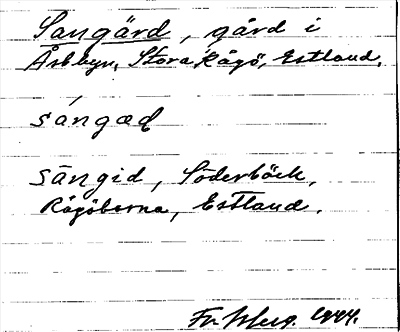 Sangärd, gård i
Åsbbyn, Stora Rågö, Estland.
sángæd
sāngid, Söderböck,
Rågöberna, Estland.
1944.